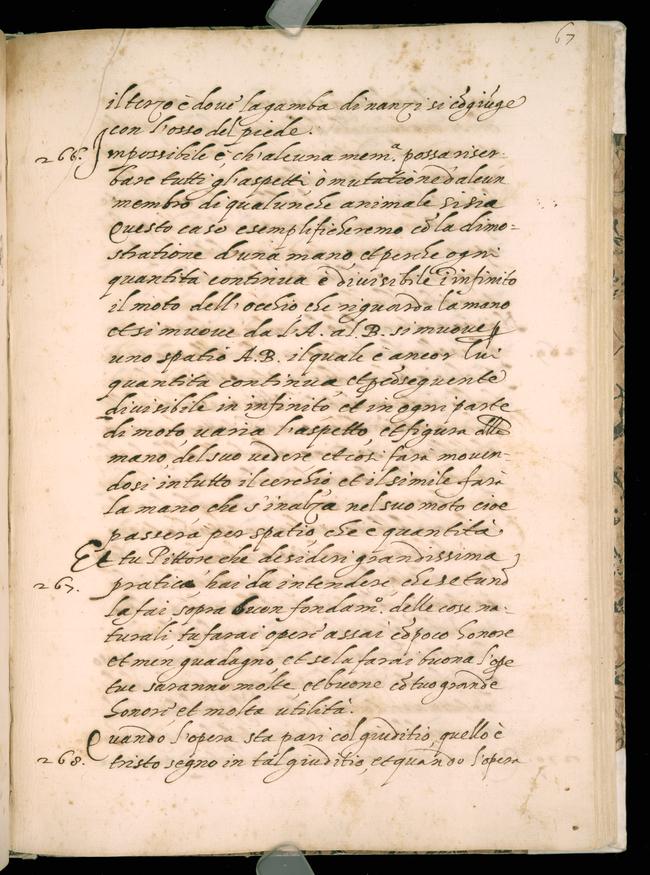 67
il terzo è dove la gamba dinanzi si cōgiūge
con l'osso del piede.
266. Impossibile è, ch'alcuna mem.ª possa riser-
bare tutti gl'aspetti ò mutatione d'alcun
membro di qualunche animale si sia
Questo caso esemplificheremo cō la dimo=
stratione d'una mano et perche ogni
quantità continua è divisibile ī infinito
il moto dell'occhio, che riguarda la mano
et si muove da l'A. al B. si muove p
uno spatio A.B. il quale è ancor lui
quantità continua, et p cōsequente
divisibile in infinito, et in ogni parte
di moto varia l'aspetto, et figura della
mano, del suo vedere et cosi farà moven-
dosi in tutto il cerchio et il simile farà
la mano che s'inalza nel suo moto cioè
passerà per spatio, che è quantità.
Et tu Pittore che desideri grandissima
267. pratica hai da intendere, che se tu nō
la fai sopra buon fondam.º delle cose na-
turali, tu farai opere assai cō poco honore
et men guadagno, et se la farai buona l'ope
tue saranno molte, et buone cō tuo grande
honore et molta utilità.
Quando l'opera sta pari col giuditio, quello è
268. tristo segno in tal giuditio, et quando l'opera